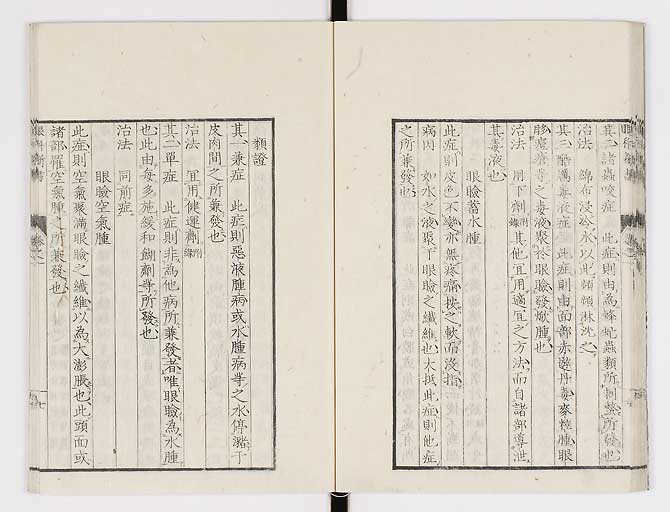 其二諸蟲咬症　此症則由為蜂蛇蟲類所刺螫所發也
治法　綿布浸冷水以此頻頻淋洗之
其三酷厲毒液症　此症則由面部赤遊丹毒麥粒腫眼
胗瘡等之毒液聚於眼瞼發焮腫也
治法　用下劑附錄其他宜用適宜之方法而自諸部導泄
其毒液也
眼瞼蓄水腫
此症則皮色不變亦無疼痛按之軟而沒指
病因　如水之液聚于眼瞼之纖維也大抵此症則他症
之所兼發也
類證
其一兼症　此症則惡液腫病或水腫病等之水停瀦于
皮肉間之所兼發也
治法　宜用健運劑附錄
其二單症　此症則非為他病所兼發者唯眼瞼為水腫
也此由每多施緩和餬劑等所發也
治法　同前症
眼瞼空氣腫
此症則空氣聚滿眼瞼之纖維以為大澎脹也此頭面或
諸部罹空氣腫之所兼發也
眼科新書